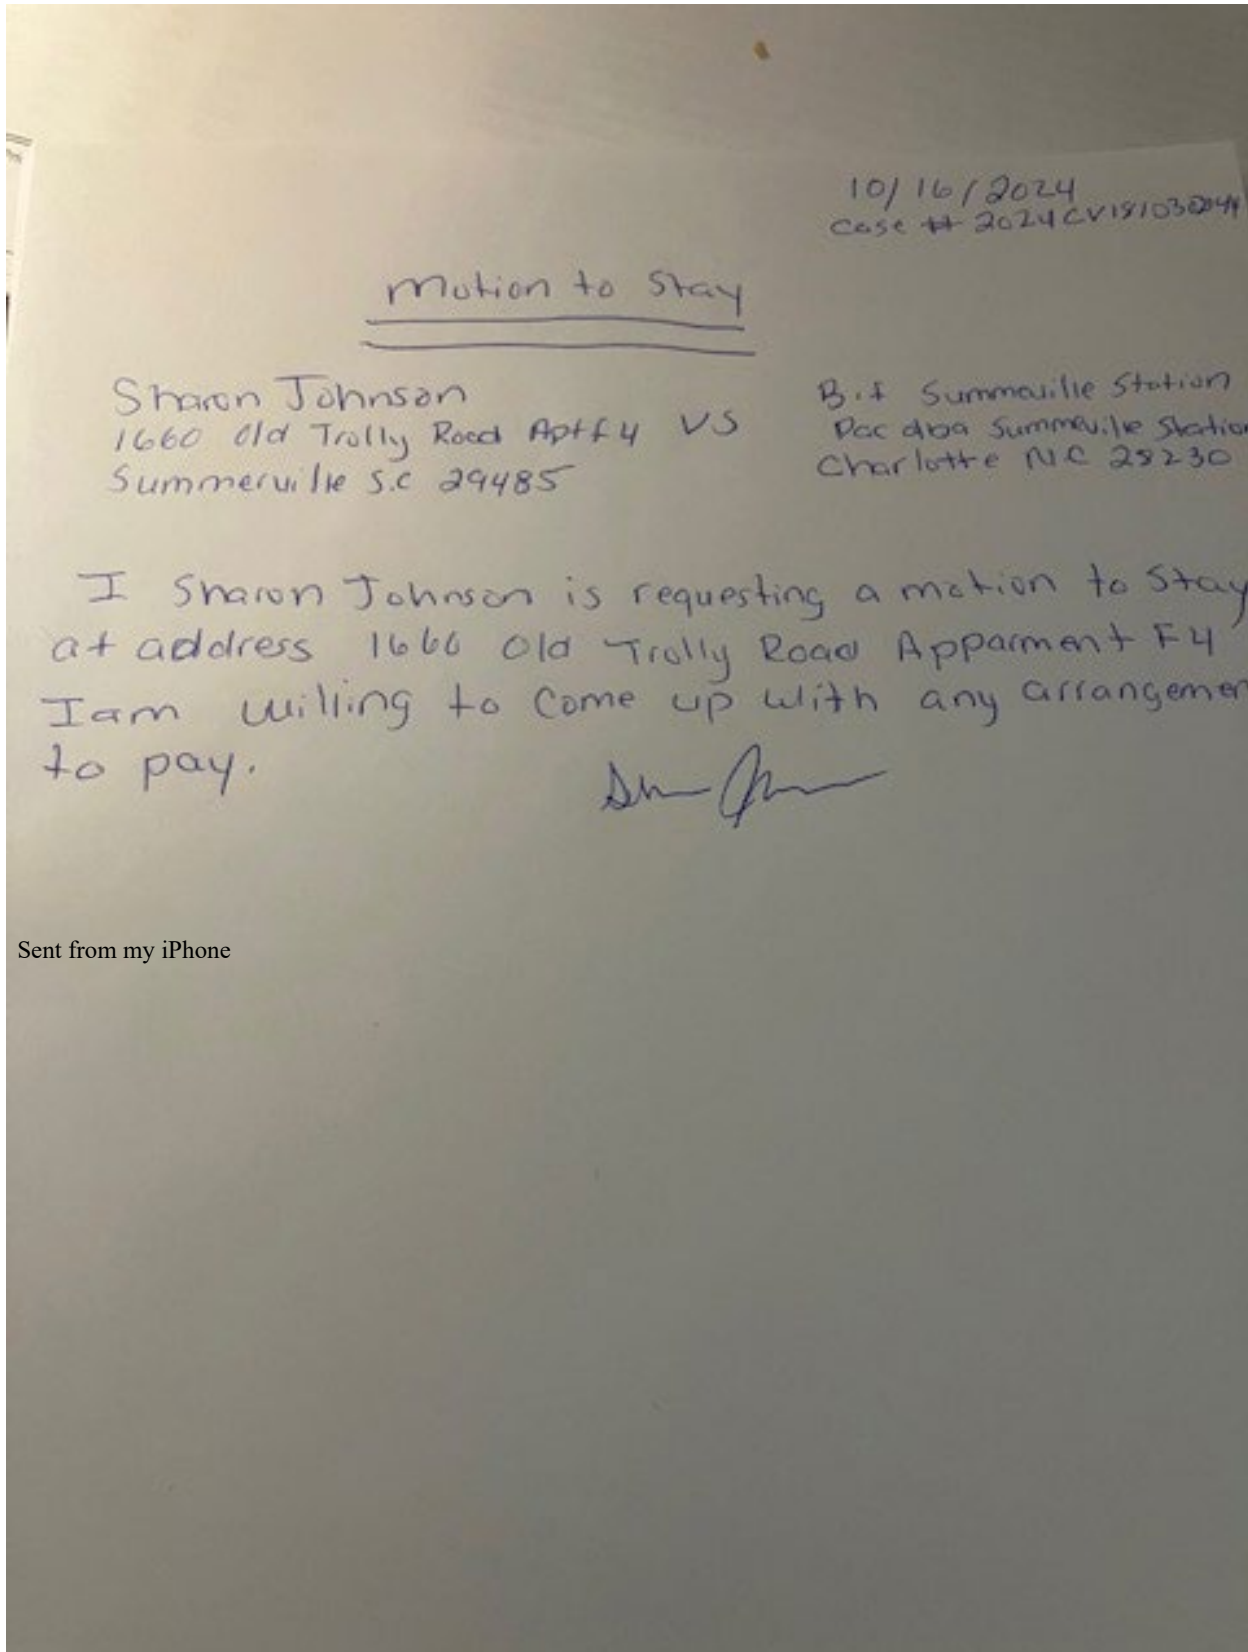 10/16/2024
Case # 2024CV181030
Motion to Stay
Sharon Johnson
1660 Old Trolly Road Apt F4 VS
Summerville S.C 29485
B.F Summerville Station
dba Summerville Station
Charlotte NC 28230
I Sharon Johnson is requesting a motion to Stay
at address 1660 Old Trolly Road Apparment F4
I am willing to come up with any arrangemen
to pay.
Sent from my iPhone